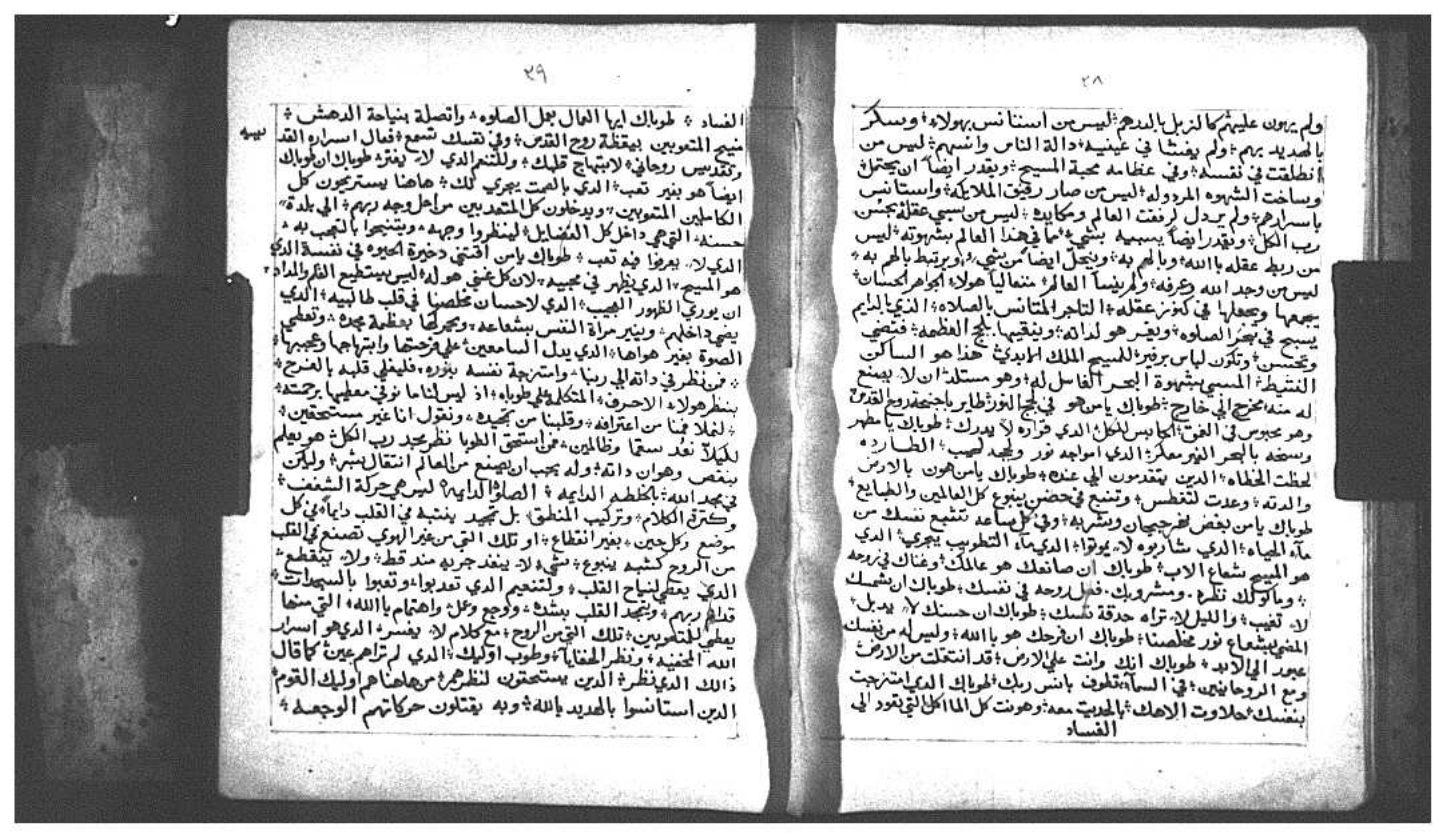 ٢٨
ولم يهون عليهم كالزبل بالدرهم ليس من استانس بهولاء وسكر
بالهديد بهم ولم يفتشا في عينيه دالة الناس وانسهم ليس من
انطلقت في نفسه وفي عظامه محبة المسيح ويقدر ايضاً ان يحتمل
وساخت الشهوه المردوله ليس من صار رفيق الملايكه واستانس
باسرارهم ولم يردل لرفعت العالم ومكايده ليس من سبي عقله بحسن
رب الكل ويقدر ايضاً يسبيه بشي مما في هذا العالم بشهوته ليس
من ربط عقله باالله وبالهم به وينحل ايضاً من شي ويرتبط بالهم به
ليس من وجد الله وعرفه ولم ينسا العالم متعالياً هولاء الجواهر الحسان
يجمعها ويجعلها في كنوز عقله التاجر المتانس بالصلاه الذي دايم
يسبح في بحر الصلوه ويفسر هو لداته وينقيها بلج العظمه فتضي
وتحسن وتكون لباس برفير للمسيح الملك الابدي هذا هو الساكن
النشيط المسبي بشهوة البحر الغاسل له وهو مستلذ ان لا يصنع
له منه مخرج الي خارج طوباك يامن هو في لج النور طاير باجنحة روح القدس
وهو محبوس في العمق الحابس للكل الذي قراره لا يدرك طوباك يا مطهر
وسخه بالبحر الغير معكر الذي امواجه نور ولجه لهيب الطارده
لحظت الخطاه الذين يتقدمون الي عنده طوباك يامن هون بالارض
والدته وعدت لتغطس وتنبع في حضن ينبوع كل العالمين والطبايع
طوباك يامن بغض نهر جيحان ويشربه وفي كل ساعه تتشبع نفسك من
ماء الحياه الذي شاربوه لا يموتوا الذي ماء التطويب يجري الذي
هو المسيح شعاع الاب طوباك ان صانعك هو عالمك وغناك في روحه
وماكولك نظره ومشروبك فعل روحه في نفسك طوباك ان شمسك
لا تغيب والليل لا تراه حدقة نفسك طوباك ان حسنك لا يدبل
المضي بشعاع نور مخلصنا طوباك ان فرحك هو باالله وليس له من نفسك
عبور الي الابد طوباك انك وانت علي الارض قد انتقلت من الارض
ومع الروحانيين في السماء تطوف بانس ربك طوباك الذي امتزجت
بنفسك حلاوت الاهك بالحديث معه وهونت كل الماكل التي يقود الي
الفساد
٢٩
الفساد طوباك ايها العمال بعمل الصلوه واتصلة بنياحة الدهش
منيح المتعوبين بيقظة روح القدس وفي نفسك تسمع فعال اسراره القد
وتقديس روحاني لابتهاج قلبك وللتنعم الذي لا يفتره طوباك ان طوباك
ايضاً هو بغير تعب الذي بالصمت يجري لك هاهنا يستريحون كل
الكاملين المتعوبين ويدخلون كل المتعبين من اجل وجه ربهم الي بلدة
حسنه التي هي داخل كل الفضايل لينظروا وجهه ويتنيحوا بالتعجب به
الذي لا يعرفوا فيه تعب طوباك يامن اقتني دخيرة الحيوه في نفسة الذي
هو المسيح الذي يظهر في محبيه لان كل غني هو له ليس يستطيع القلم والمداد
ان يوري الظهور العجيب الذي لاحسان مخلصنا في قلب طالبيه الذي
يضي داخلهم وينير مراة النفس بشعاعه ويحركها بعظمة مجده وتعطي
الصوة بغير هواها الذي يدل السامعين علي فرحتها وابتهاجها وعجبها
من نظر في داته الي ربنا وامتزجة نفسه بنوره فليغلي قلبه بالفرح
بنظر هولاء الاحرف المتكلمه علي طوباه اذ ليس لنا ما نوفي معطيها برحمته
لنملا فمنا من اعترافه وقلبنا من تمجيده ونقول انا غير مستحقين
لكيلا نعد سقما وظالمين فمن استحق الطوبا نظر مجد رب الكل هو يعلم
بنقص وهوان داته وله يجب ان يصنع من العالم انتقال بشره وليكن
في مجد الله بالخلطه الدايمه الصلوة الدايمة ليس هي حركة الشفف
وكثرة الكلام وتركيب المنطق بل تمجيد ينتبه في القلب دايماً في كل
موضع وكل حين بغير انقطاع او تلك التي من غير الهوي تصنع في القلب
من الروح كشبه ينبوع شيء لا ينفد جريه منه قط ولا ينقطع
الذي يعطي لنياح القلب ولتنعيم الذي تعدبوا وتعبوا بالسجدات
قدام ربهم وبتجلد القلب بشده ووجع وعمل واهتمام باالله التي منها
يعطي للمتعوبين تلك التي من الروح مع كلام لا يفسر الذي هو اسرار
الله المخفيه ونظر الخفايا وطوب اوليك الذي لم تراهم عين كما قال
ذالك الذي نظر الذين يستحقون لنظرهم من هاهنا هم اوليك القوم
الذين استانسوا بالهديد بالله وبه يقتلون حركاتهم الوجعه